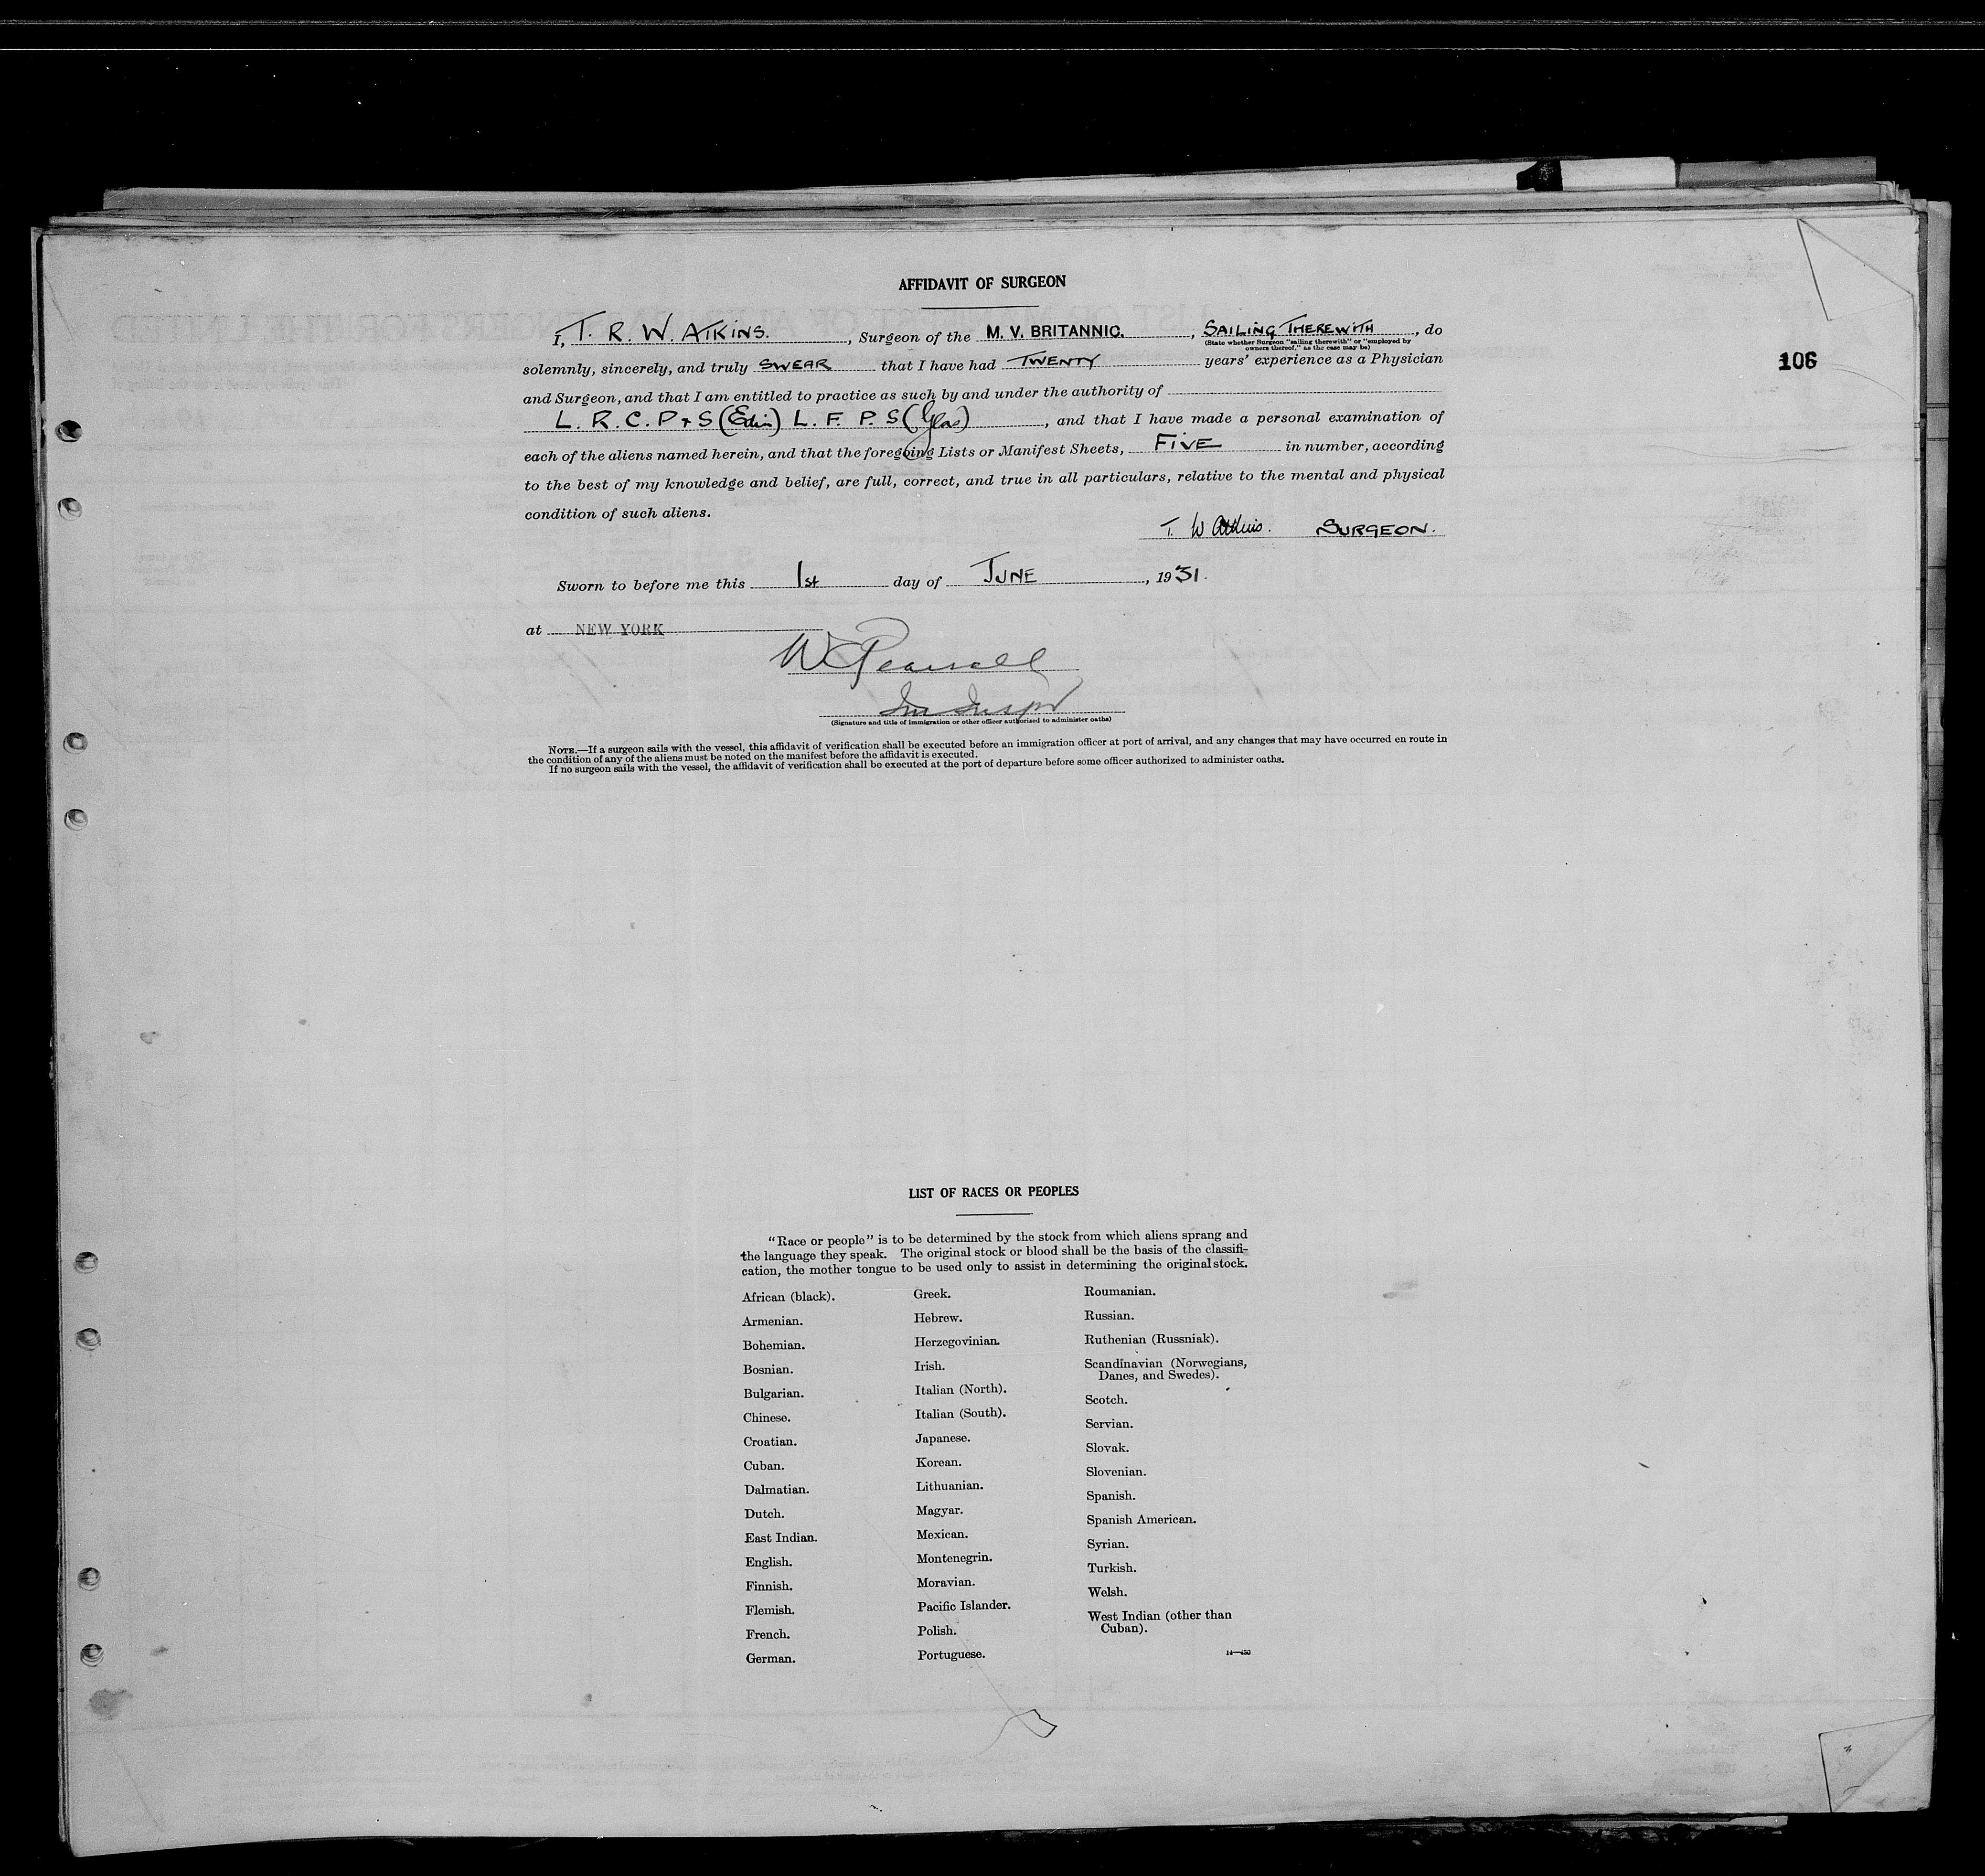 AFFIDAVIT OF SURGEON
I, T. R. W. ATKINS. , Surgeon of the M. V. BRITANNIC. , SAILING THEREWITH , do
(State whether Surgeon "sailing therewith" or "employed by
owners thereof," as the case may be)
106
solemnly, sincerely, and truly SWEAR that I have had TWENTY years' experience as a Physician
and Surgeon, and that I am entitled to practice as such by and under the authority of
L. R. C. P + S (Edin) L. F. P. S (Glas) , and that I have made a personal examination of
each of the aliens named herein, and that the foregoing Lists or Manifest Sheets, FIVE in number, according
to the best of my knowledge and belief, are full, correct, and true in all particulars, relative to the mental and physical
condition of such aliens.
T. W Atkins. SURGEON.
Sworn to before me this 1st day of JUNE , 1931.
at NEW YORK
W Pearsall
Im Inspr
(Signature and title of immigration or other officer authorized to administer oaths)
NOTE.—If a surgeon sails with the vessel, this affidavit of verification shall be executed before an immigration officer at port of arrival, and any changes that may have occurred en route in
the condition of any of the aliens must be noted on the manifest before the affidavit is executed.
If no surgeon sails with the vessel, the affidavit of verification shall be executed at the port of departure before some officer authorized to administer oaths.
LIST OF RACES OR PEOPLES
"Race or people" is to be determined by the stock from which aliens sprang and
the language they speak. The original stock or blood shall be the basis of the classifi-
cation, the mother tongue to be used only to assist in determining the original stock.
African (black).
Armenian.
Bohemian.
Bosnian.
Bulgarian.
Chinese.
Croatian.
Cuban.
Dalmatian.
Dutch.
East Indian.
English.
Finnish.
Flemish.
French.
German.
Greek.
Hebrew.
Herzegovinian.
Irish.
Italian (North).
Italian (South).
Japanese.
Korean.
Lithuanian.
Magyar.
Mexican.
Montenegrin.
Moravian.
Pacific Islander.
Polish.
Portuguese.
Roumanian.
Russian.
Ruthenian (Russniak).
Scandinavian (Norwegians,
Danes, and Swedes).
Scotch.
Servian.
Slovak.
Slovenian.
Spanish.
Spanish American.
Syrian.
Turkish.
Welsh.
West Indian (other than
Cuban).
14—450